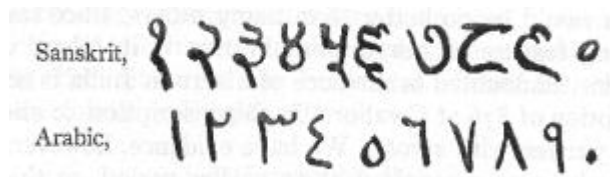 Sanskrit, १ २ ३ ४ ५ ६ ७ ८ ९ ०
Arabic, ١ ٢ ٣ ٤ ٥ ٦ ٧ ٨ ٩ ٠